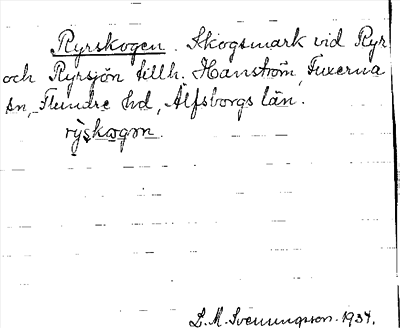 Ryrskogen. Skogsmark vid Ryr
och Ryrsjön tillh. Hanström, Fuxerna
sn, Flundre hd, Älfsborgs län.
rỳskogən.
L. M. Svenungsson. 1934.